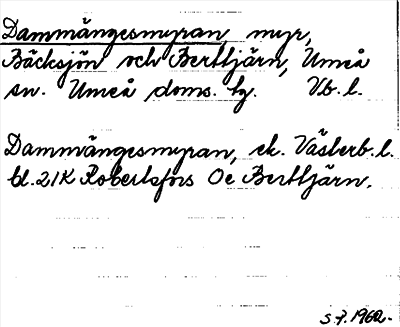 Dammängesmyran myr,
Bäcksjön och Bertljärn, Umeå
sn. Umeå doms. tg. Vb. l.
Dammängesmyran, ek. Västerb. l.
bl. 21K Robertsfors Oe Bertljärn.
S.F. 1962.